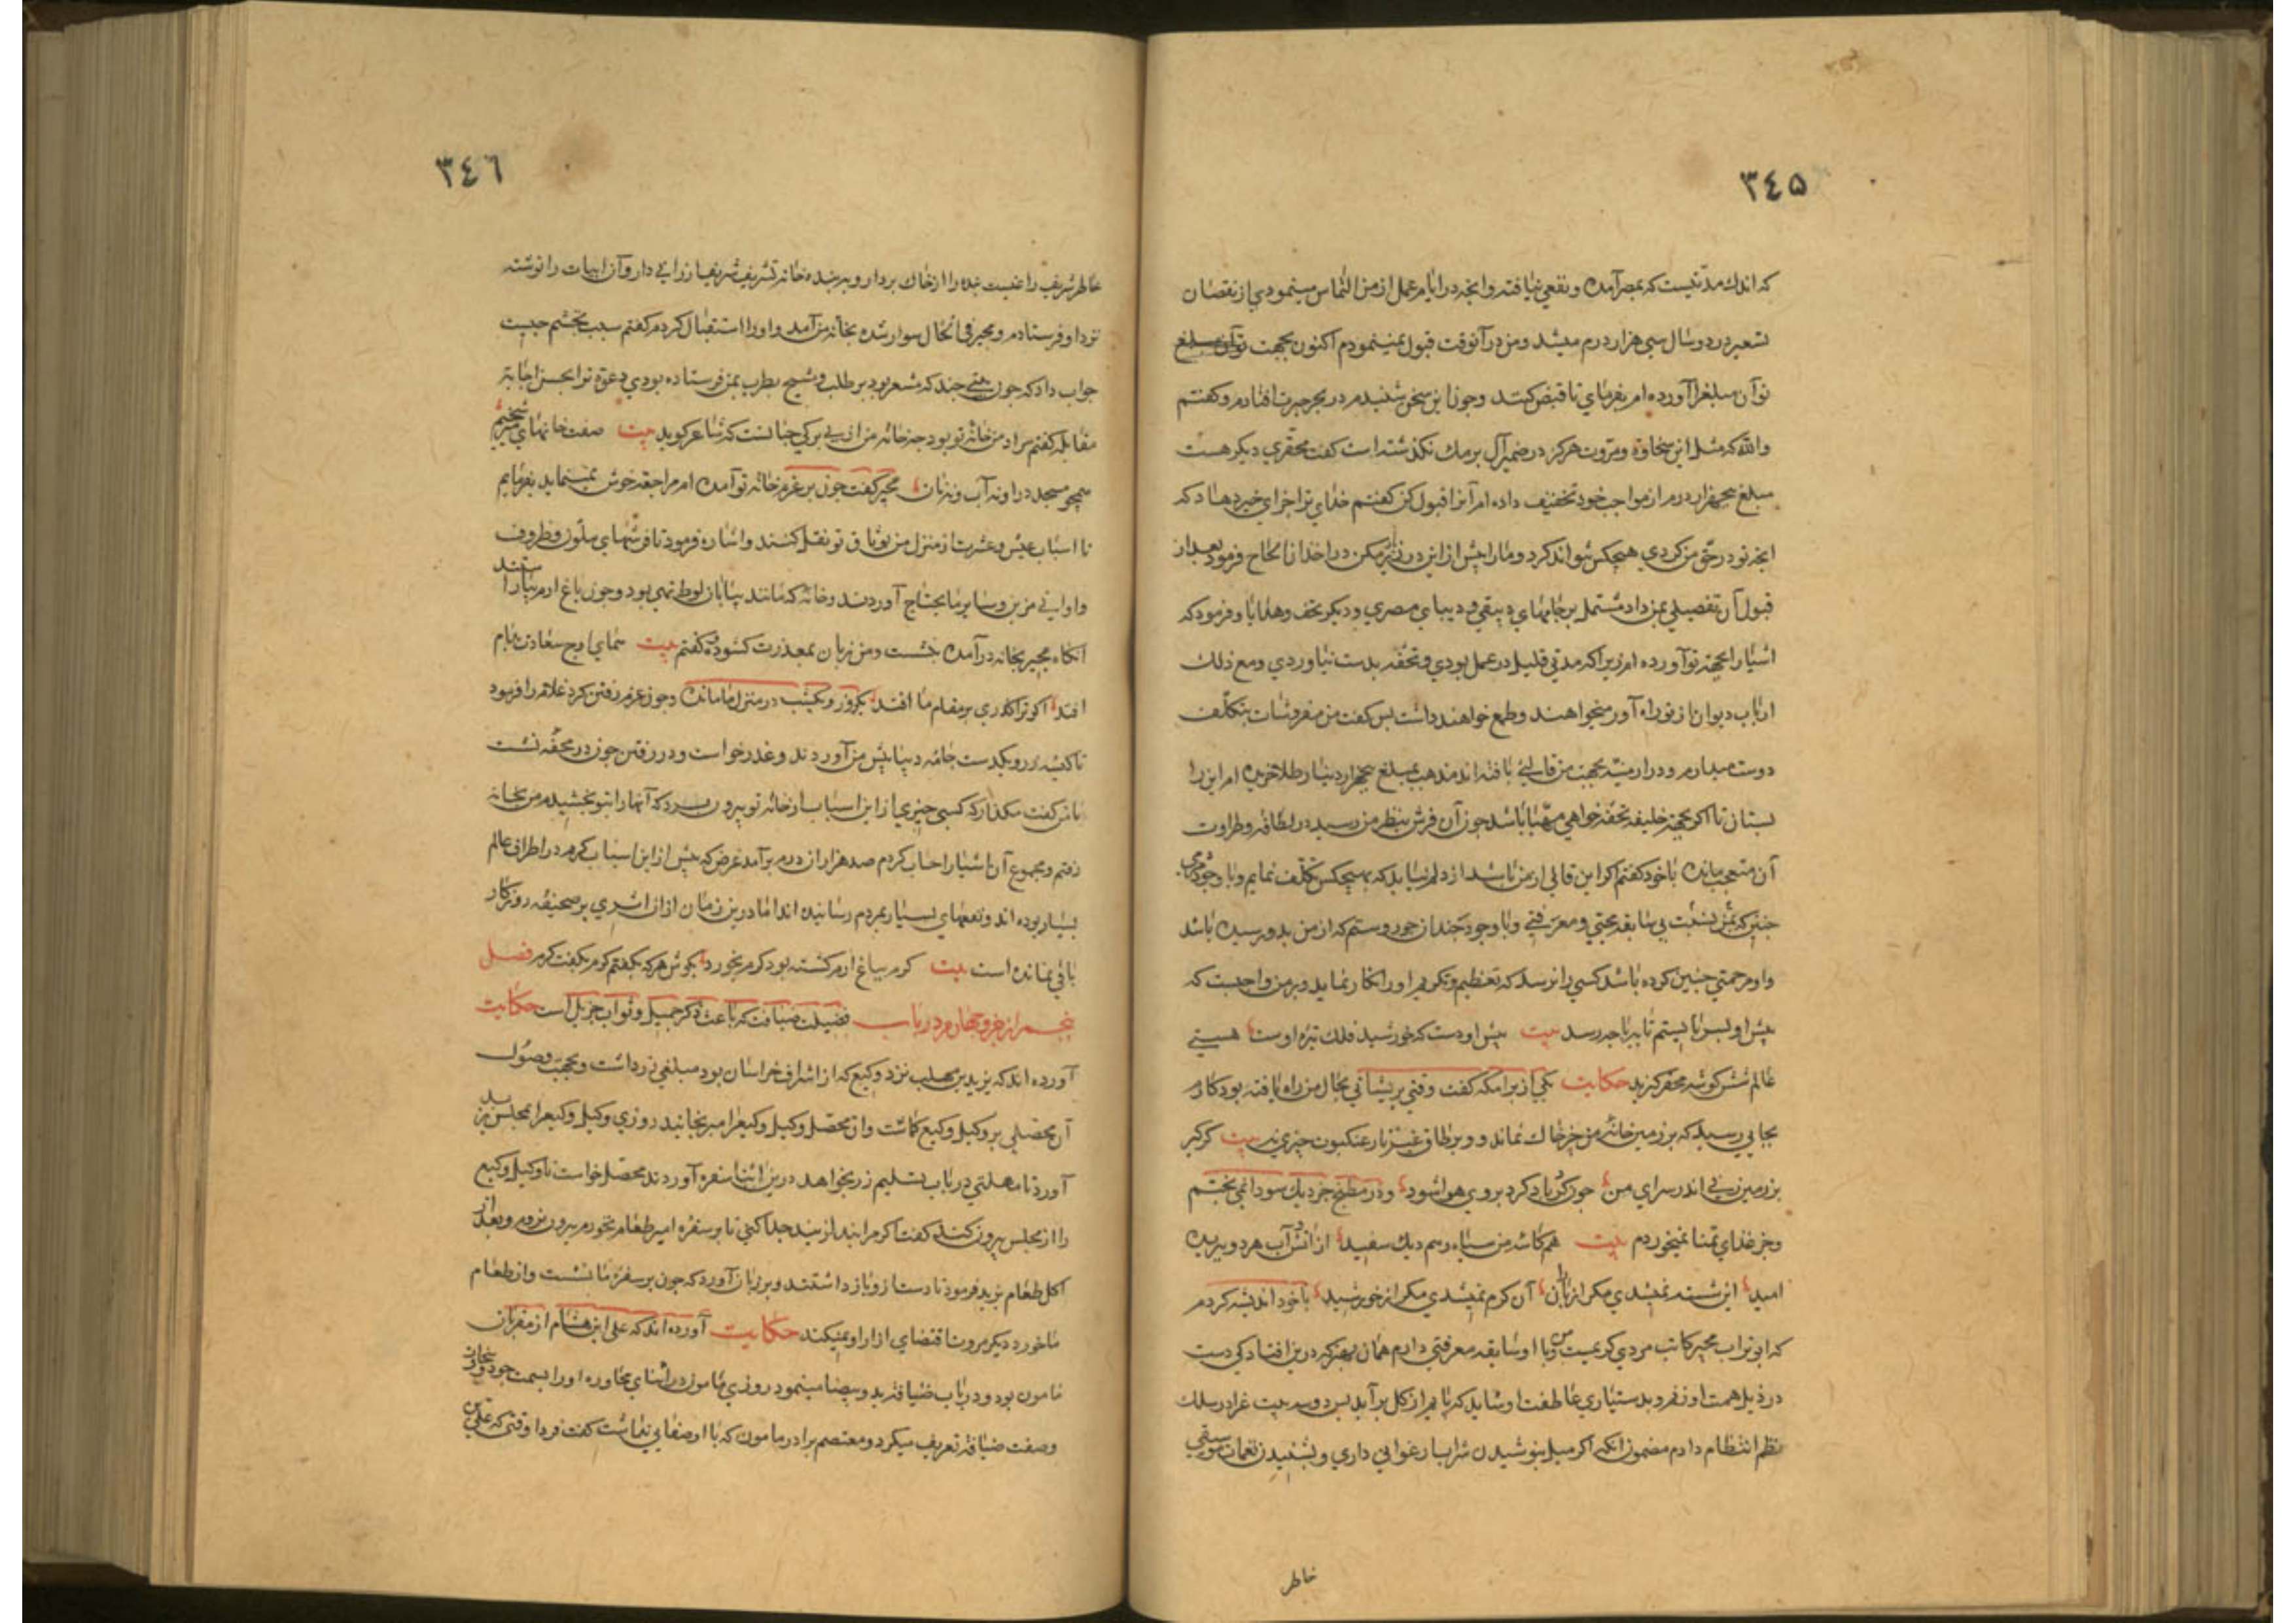 ٣٤٥
که اندك مدّتیست که بمصر آمده و نفعی نیافته وانچه در ایام عمل از من التماس مینمودی از نقصان
تسعیر در دو سال سی هزار درم میشد ومن در آنوقت قبول نمینمودم اکنون بجهت تو آن مبلغ
تو آن مبلغرا آورده ام بفرمای تا قبض کنند وچون این سخن شنیدم در بحر حیرت افتادم وکفتم
والله که مثل این سخاوة ومروّت هرکز در ضمیر آل برمك نکذشته است کفت محقّری دیکر هست
مبلغ پنجهزار درم از مواجب خود تخفیف داده ام آنرا قبول کن کفتم خدای ترا جزای خیر دهاد که
انچه تو در حق من کردی هیچکس نتواند کرد ومارا پیش ازاین در زیر مکن در اخذ آن الحاح فرمود بعد از
قبول آن تفصیلی بمن داد مشتمل بر جامهای دیبقی ودیبای مصری ودیکر تحف وهدایا وفرمود که
اشیارا بجهة تو آورده ام زیرا که مدتی قلیل در عمل بودی وتحفه بدست نیاوردی ومع ذلك
ارباب دیوان از تو راه آورد میخواهند وطمع خواهند داشت پس کفت من مفروشات بتکلّف
دوست میدارم ودر ارمنیّه بجهت من قالیی بافته اند مذهب بمبلغ پنجهزار دینار طلا خریده ام این را
بستان تا اکر بجهة خلیفه تحفه خواهی مهیّا باشد چون آن فرش بنظر من رسید در لطافة وطراوت
آن متعجب مانده با خود کفتم اکر این قالی از من باشد از دلم نیاید که بهیچکس تکلّف نمایم وبا وجود
چنین که بمن نسبت بی سابقه محبتی ومعرفتی وبا وجود چندان جور وستم که از من بدو رسیده باشد
واو مرحمتی چنین کرده باشد کسی را نرسد که تعظیم وتکریم اورا انکار نماید وبر من واجبست که
پیش او بسر بایستم تا بپا چه رسد بیت پیش او دست که خورشید فلك تیره اوست هستی
عالم شش کوشه محقر کزید حکایت یکی از برامکه کفت وقتی پریشانی بحال من راه یافته بود کارم
بجایی رسید که بر زمین خانه من جز خاك نماند ودر بر طاق غیر از تار عنکبوت چیزی نه بیت کرکبر
بر زمین نی اندر سرای من جو کر باد کرد بروی هوا شود ودر مطبخ جز دیك سودا نمی پختم
وجز غذای تمنا نمیخوردم بیت هم کاسه من سیاه وهم دیك سفید از آتش وآب هر دو ببریده
امید این شسته نمیشدی مکر از باران آن کرم نمیشدی مکر از خورشید با خود اندیشه کردم
که ابو تراب مجیر کاتب مردی کریمست ومن با او سابقه معرفتی دارم همان بهتر که درین افتادکی دست
در ذیل همت او زنم وبدستیاری عاطفت او شاید که پایم از کل بر آید پس دو سه بیت غرا در سلك
نظم انتظام دادم مضمون انکه اکر میل بنوشیدن شراب ارغوانی داری وبشنیدن نغمات موسیقی
خاطر
٣٤٦
خاطر شریف را غبست بنده را از خاك بردار وبر بنده خانه تشریف شریف ارزانی دار وآن ابیات را نوشته
نزد او فرستادم ومجیر فی الحال سوار شده بخانه من آمد واورا استقبال کردم کفتم سبب تجشّم چیست
جواب داد که چون بیتی چند که مشعر بود بر طلب بمن فرستاده بودی دعوة ترا بحسن اجابة
مقابله کفتم مراد من خانه تو بود چه خانه من از بی برکی چنانست که شاعر کوید بیت صفت خانهای
همچو مسجد درو نه آب ونه نان مجیر کفت چون بر عزم خانه تو آمده ام مراجعة خوش نمینماید بفرمایم
تا اسباب عیش وعشرت از منزل من بوثاق تو نقل کنند واشاره فرمود تا فرشهای ملوّن وظروف
واوانی مزین وسایر مایحتاج آوردند وخانه که مانند بیابان لوط تهی بود وچون باغ ارم بیاراستند
انکاه مجیر بخانه درآمده نشست ومن زبان بمعذرت کشوده وکفتم بیت همای اوج سعادت بدام
افتد اکر ترا کذری بر مقام ما افتد یکروز ویکشب در منزل ما مانده وچون عزم رفتن کرد غلامرا فرمود
تا کیسه زر ویکدست جامه دیبا پیش من آوردند وعذر خواست ودر رفتن چون در محفّه نشست
با من کفت مکذار که کسی چیزی از این اسباب از خانه تو بیرون برد که آنهارا بتو بخشیدم من بخانه
رفتم ومجموع آن اشیارا حساب کردم صد هزار درم برآمد غرض که پیش ازاین اسباب کرم در اطراف عالم
بسیار بوده اند ونفعهای بسیار بمردم رسانیده اند اما درین زمان ازان اثری بر صحیفه روزکار
باقی نمانده است بیت کرم بباغ ارم کشته بود کرم بخورد بکوش هر که بکفتم کرم بکفت کرم فصل
پنجم از جزو چهارم در باب فضیلت ضیافت که باعث ذکر جمیل وثواب جزیل است حکایت
آورده اند که یزید بن مهلب نزد وکیع که از اشراف خراسان بود مبلغی زر داشت وبجهت وصول
آن محصّلی بر وکیل وکیع کماشت وان محصّل وکیل وکیعرا میرنجانید روزی وکیل وکیعرا بمجلس یزید
آورد تا مهلتی در باب تسلیم زر بخواهد درین اثنا سفره آوردند محصّل خواست تا وکیل وکیع
را از مجلس بیرون کند کفت اکر مرا بند از بند جدا کنی تا بر سفره امیر طعام نخورم بیرون نروم وبعد از
اکل طعام یزید فرمود تا دست ازو باز داشتند وبر زبان آورد که چون بر سفره ما نشست واز طعام
ما خورد دیکر مروت اقتضای ازار او نمیکند حکایت آورده اند که علی ابن هشام از مقربان
مامون بود ودر باب ضیافة ید وبیضا مینمود روزی مامون در اثنای محاوره اورا بسمت جود وسخاوت
وصفت ضیافة تعریف میکرد ومعتصم برادر مامون که با او صفایی نداشت کفت فردا وقتی که علی